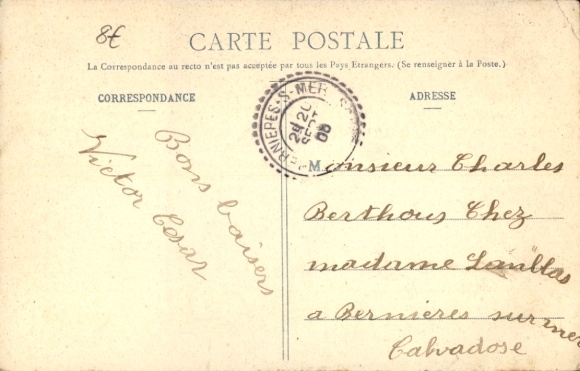 8€
CARTE POSTALE
La Correspondance au recto n'est pas acceptée par tous les Pays Etrangers. (Se renseigner à la Poste.)
CORRESPONDANCE
ADRESSE
BERNIERES-S-MER
SEPT
Bons baisers
Victor Cesar
Monsieur Charles
Berthous Chez
madame
a Bernieres sur mer
Calvadose